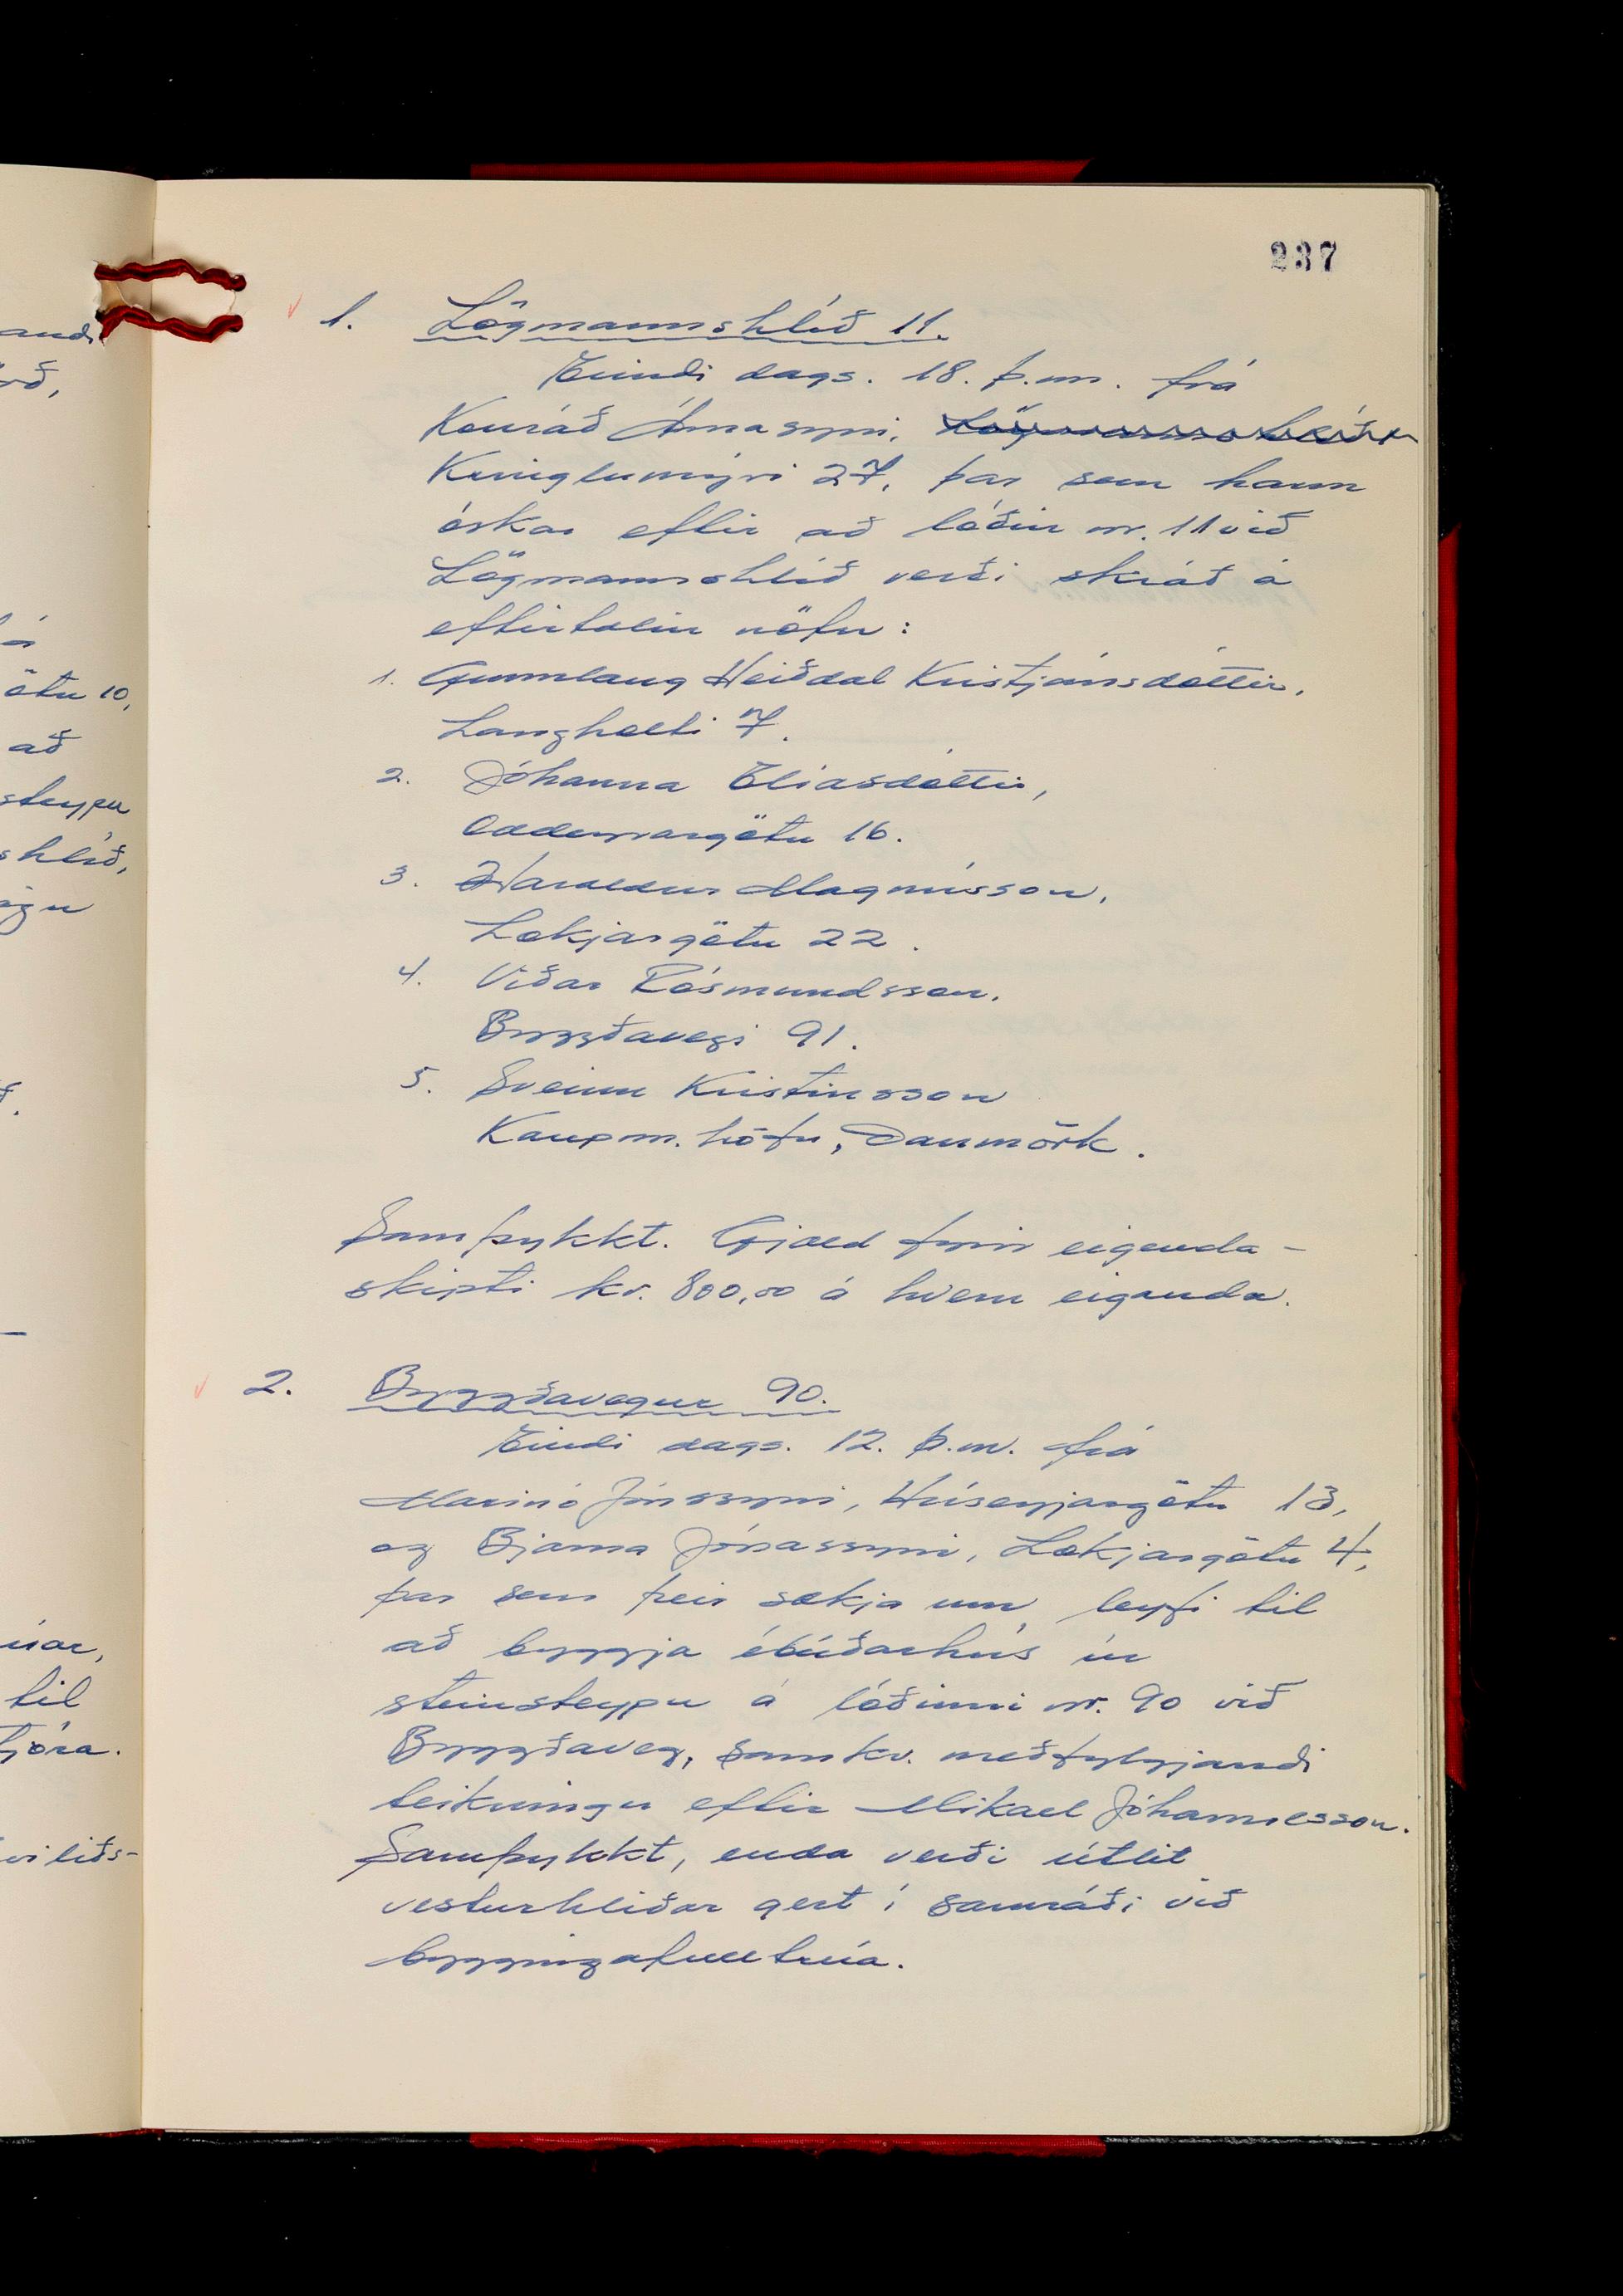 237
1. Lögmannshlíð 11.
Erindi dags. 18. þ.m. frá
Konráð Árnasyni,
Kringlumýri 27, þar sem hann
óskar eftir að lóðin nr. 11 við
Lögmannshlíð verði skráð á
eftirtalin nöfn:
1. Gunnlaug Heiðdal Kristjánsdóttir,
Langholti 7.
2. Jóhanna Elíasdóttir,
Oddeyrargötu 16.
3. Haraldur Magnússon,
Lækjargötu 22.
4. Viðar Rósmundsson,
Byggðavegi 91.
5. Sveinn Kristinsson
Kaupm.höfn, Danmörk.
Samþykkt. Gjald fyrir eigenda-
skipti kr. 800,00 á hvern eiganda.
2. Byggðavegur 90.
Erindi dags. 12. þ.m. frá
Marinó Jónssyni, Norðurgötu 13,
og Bjarna Jónassyni, Lækjargötu 4,
þar sem þeir sækja um leyfi til
að byggja íbúðarhús úr
steinsteypu á lóðinni nr. 90 við
Byggðaveg, samkv. meðfylgjandi
teikningu eftir Mikael Jóhannesson.
Samþykkt, enda verði útlit
vesturhliðar gert í samráði við
byggingafulltrúa.
andi
ötu 10,
að
steypu
shlíð,
til